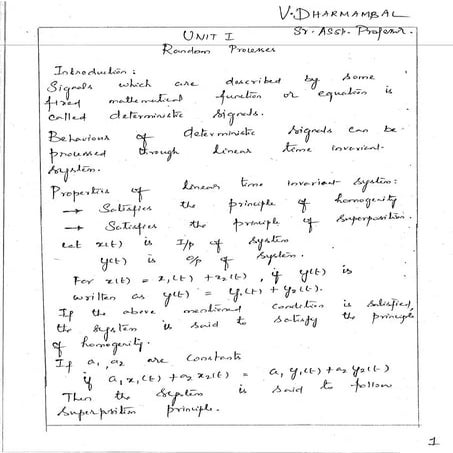 V. DHARMAMBAL
Sr. Asst. Professor.
UNIT I
Random Processes
Introduction :
Signals which are described by some
fixed mathematical function or equation is
called deterministic signals.
Behaviour of deterministic signals can be
processed through linear time invariant
system.
Properties of linear time invariant system:
→ Satisfies the principle of homogenity
→ Satisfies the principle of superposition.
Let x(t) is I/p of system
y(t) is o/p of system.
For x(t) = x₁(t) + x₂(t), if y(t) is
written as y(t) = y₁(t) + y₂(t).
If the above mentioned condition is satisfied,
the system is said to satisfy the principle
of homogenity.
If a₁, a₂ are constants
if a₁ x₁(t) + a₂ x₂(t) = a₁ y₁(t) + a₂ y₂(t)
Then the system is said to follow
superposition principle.
1